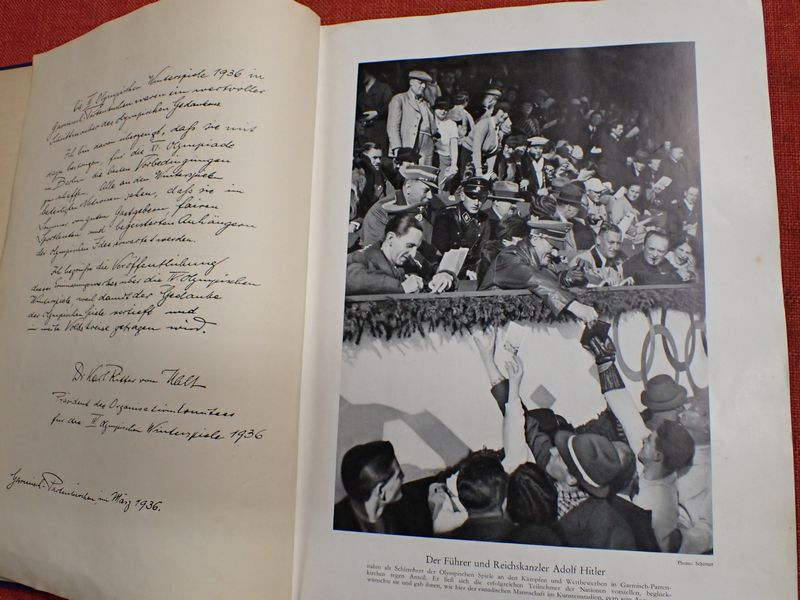 Die IV. Olympischen Winterspiele 1936 in
Garmisch-Partenkirchen waren ein wertvoller
Schrittmacher des olympischen Gedankens
Ich bin davon überzeugt, daß sie mit
dazu beitragen, für die XI. Olympiade
in Berlin die besten Vorbedingungen
zu schaffen. Alle an den Winterspielen
beteiligten Nationen sahen, daß sie im
Sommer von guten Gastgebern, fairen
Sportleuten und begeisterten Anhängern
der olympischen Idee erwartet werden.
Ich begrüße die Veröffentlichung
dieses Erinnerungswerkes über die IV. Olympischen
Winterspiele, weil damit der Gedanke
der Olympischen Spiele vertieft und
in weite Volkskreise getragen wird.
Dr. Karl Ritter von Halt
Präsident des Organisationskomitees
für die IV. Olympischen Winterspiele 1936
Garmisch-Partenkirchen, im März 1936.
Der Führer und Reichskanzler Adolf Hitler
Photo: Schirner
nahm als Schirmherr der Olympischen Spiele an den Kämpfen und Wettbewerben in Garmisch-Parten-
kirchen regen Anteil. Er ließ sich die erfolgreichen Teilnehmer der Nationen vorstellen, beglück-
wünschte sie und gab ihnen, wie hier der canadischen Mannschaft im Kunsteisstadion, gern sein